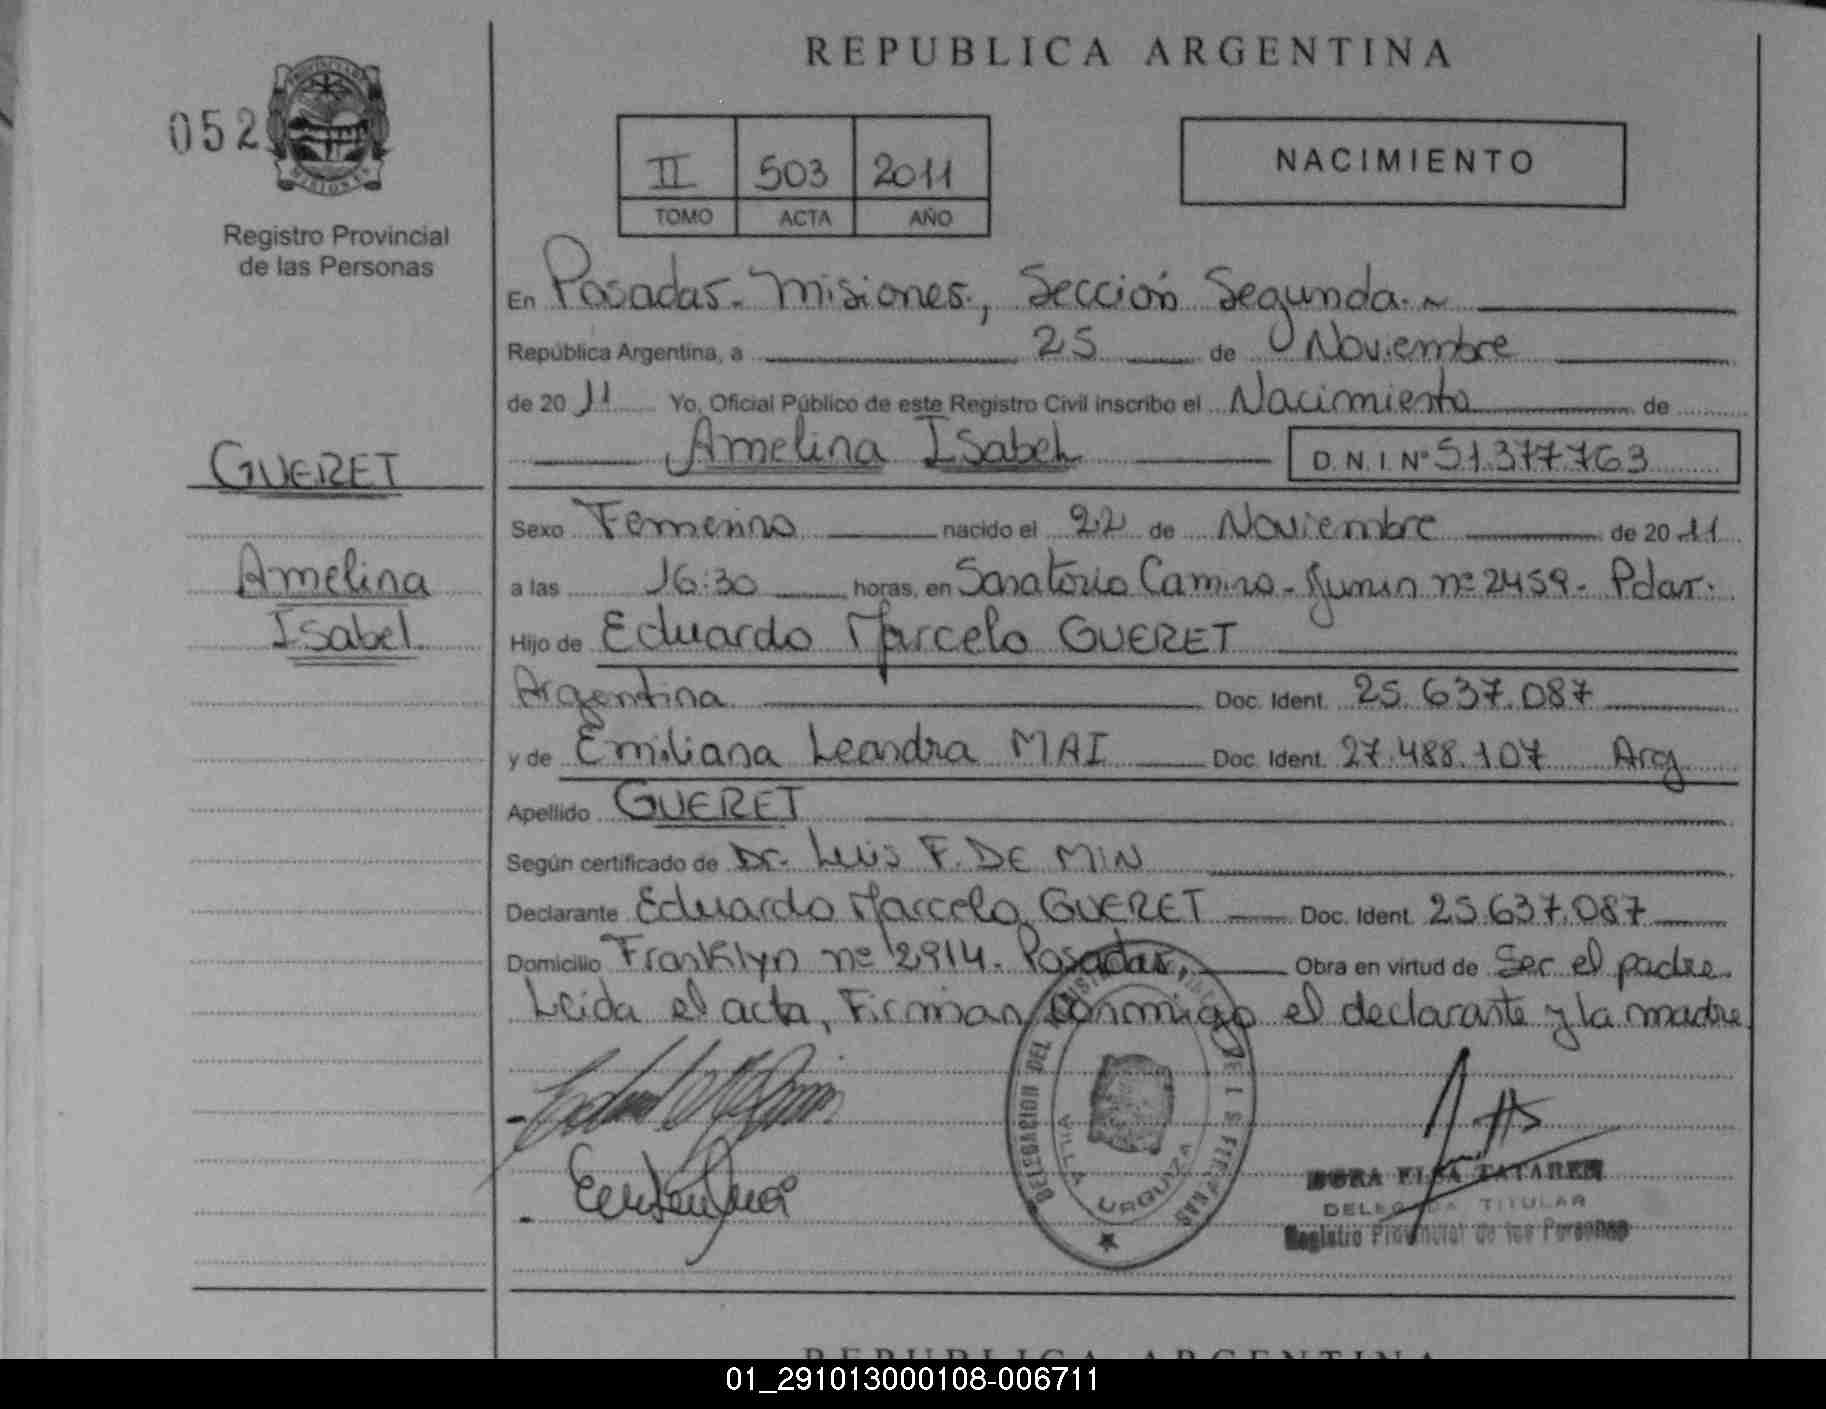 REPUBLICA ARGENTINA
052
PROVINCIA DE
MISIONES
Registro Provincial
de las Personas
II 503 2011
TOMO ACTA AÑO
NACIMIENTO
En Posadas. Misiones, Sección Segunda.~
República Argentina, a 25 de Noviembre
de 2011 Yo, Oficial Público de este Registro Civil inscribo el Nacimiento de
Amelina Isabel D.N.I. Nº 51.377.763
GUERET
Amelina
Isabel
Sexo Femenino nacido el 22 de Noviembre de 2011
a las 16:30 horas, en Sanatorio Camino - Junin nº 2459 - Pdas.
Hijo de Eduardo Marcelo GUERET
Argentina Doc. Ident. 25.637.087
y de Emiliana Leandra MAI Doc. Ident. 27.488.107 Arg
Apellido GUERET
Según certificado de Dr. Luis F. DE MIN
Declarante Eduardo Marcelo GUERET Doc. Ident. 25.637.087
Domicilio Franklyn nº 2914. Posadas, Obra en virtud de Ser el padre.
Leida el acta, Firman conmigo el declarante y la madre
DELEGACION DEL
VILLA URQUIZA
DORA ELSA TATAREN
DELEGADA TITULAR
Registro Provincial de las Personas
REPUBLICA ARGENTINA
01_291013000108-006711